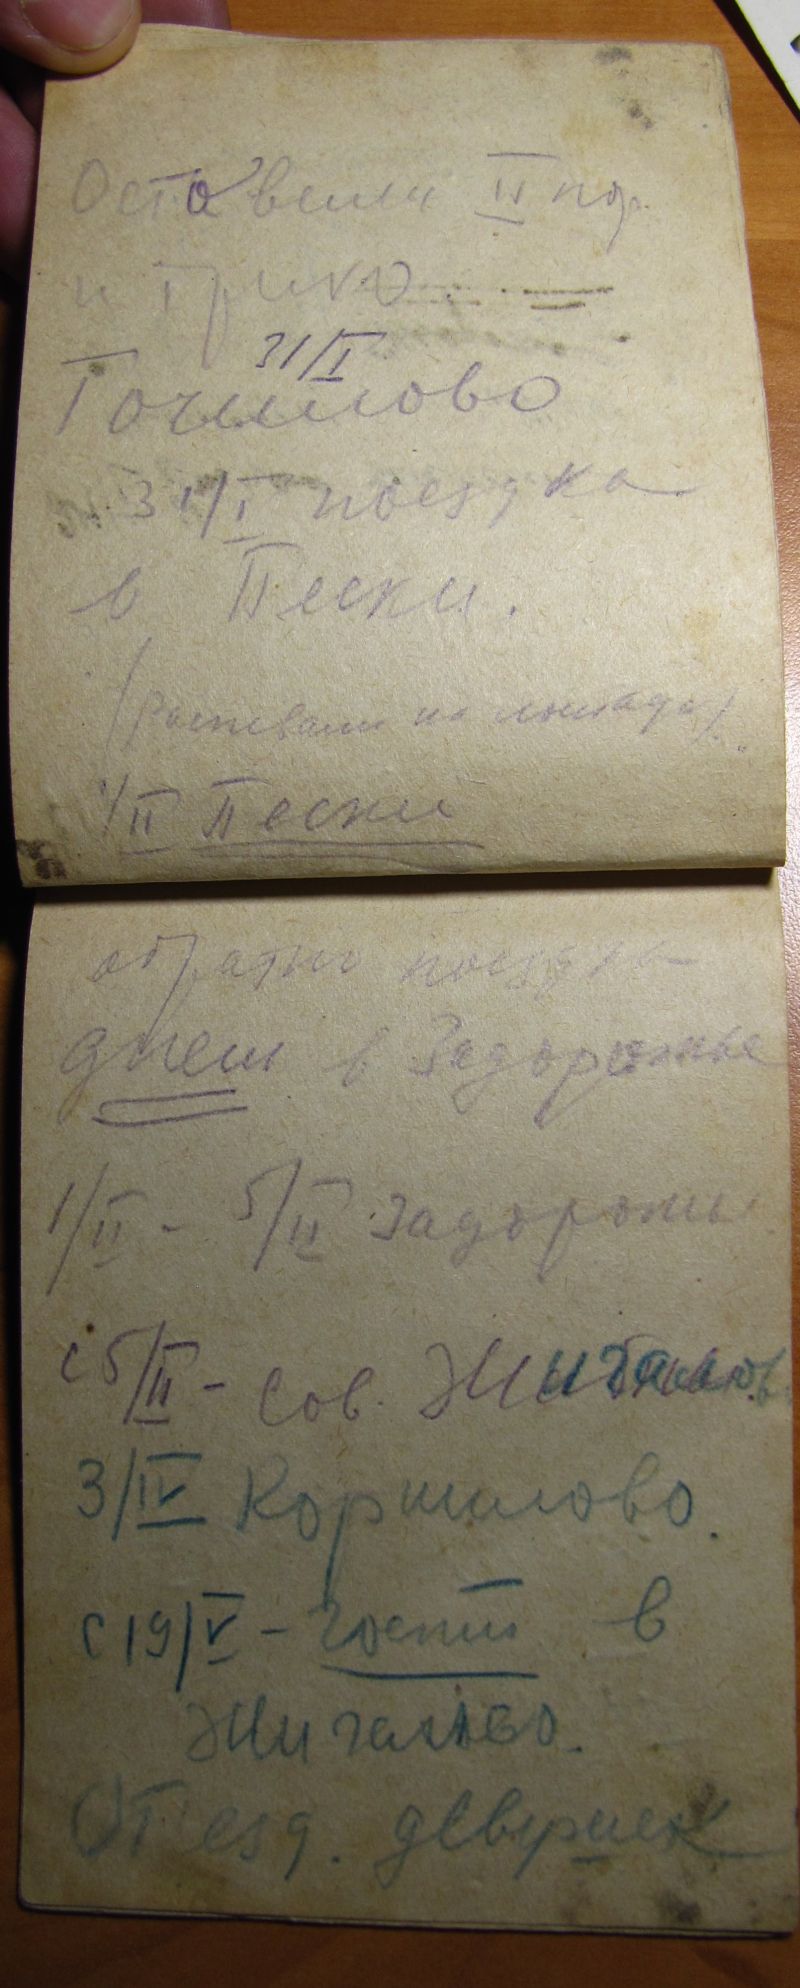 Оставили II пор.
и Трико.
31/I
Точилово
31/I поездка
в Пески.
на лошади)
1/II Пески
обратно поездка
днем в Задорожье
1/II - 5/II Задорожье
с 5/II - сов. Жигалово
3/IV Коршилово.
с 19/V - гости в
Жигалово.
Отъезд.